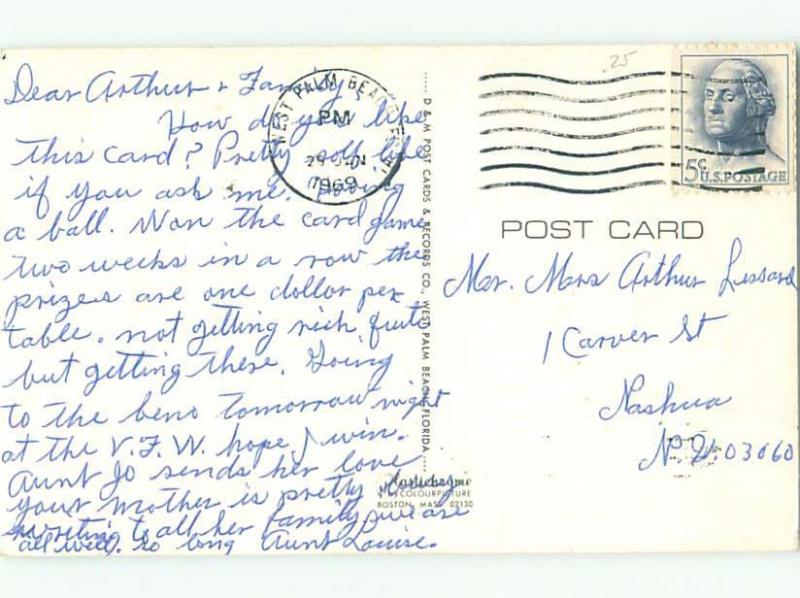 Dear Arthur & Family,
How do you like
this card? Pretty
if you ask me. Having
a ball. Won the card game
two weeks in a row the
prizes are one dollar per
table. not getting rich
but getting there. Going
to the beno tomorrow night
at the V.F.W. hope I win.
Aunt Jo sends her love
your mother is pretty
writing to all her family, we are
all well. so long Aunt Louise.
WEST PALM BEACH
PM
29
1969
D & M POST CARDS & RECORDS CO., WEST PALM BEACH, FLORIDA
Plastichrome
COLOURPICTURE
BOSTON MASS 02130
.25
5c
U.S. POSTAGE
POST CARD
Mr. Mrs Arthur Lessard
1 Carver St
Nashua
N.H. 03060